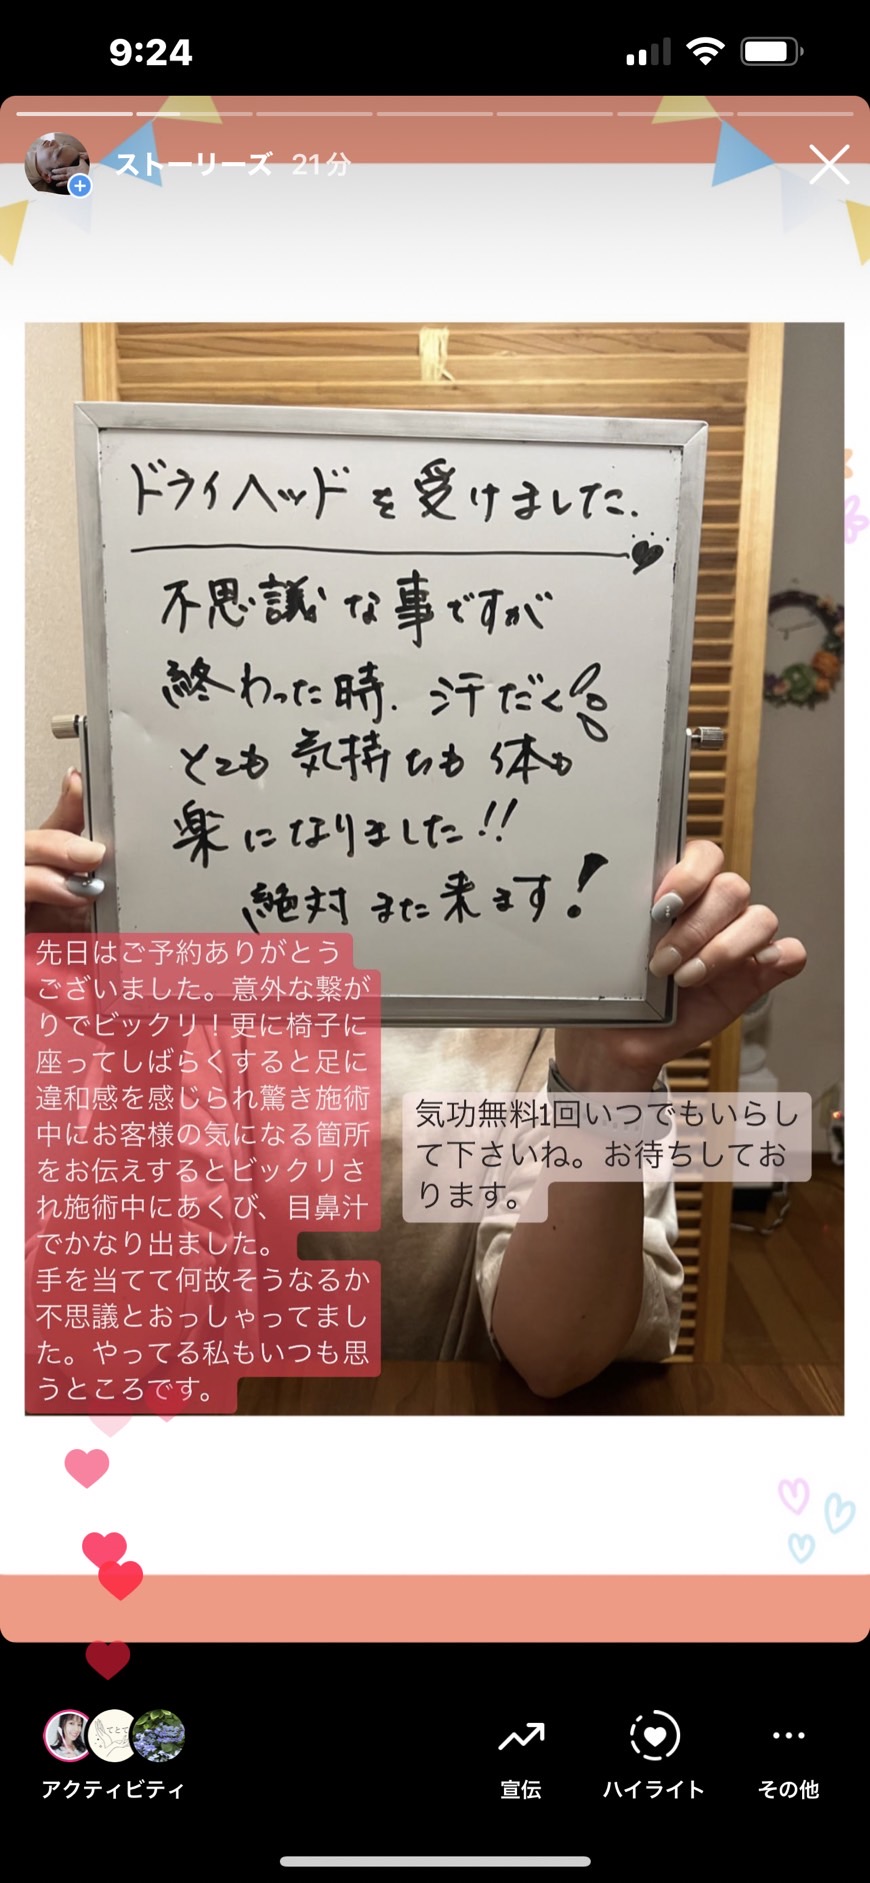 9:24
ストーリーズ 21分
ドライヘッドを受けました.
不思議な事ですが
終わった時. 汗だく
とても気持ちも体も
楽になりました!!
絶対また来ます!
先日はご予約ありがとう
ございました。意外な繋が
りでビックリ！更に椅子に
座ってしばらくすると足に
違和感を感じられ驚き施術
中にお客様の気になる箇所
をお伝えするとビックリさ
れ施術中にあくび、目鼻汁
でかなり出ました。
手を当てて何故そうなるか
不思議とおっしゃってまし
た。やってる私もいつも思
うところです。
気功無料1回いつでもいらし
て下さいね。お待ちしてお
ります。
てとて
アクティビティ
宣伝
ハイライト
その他